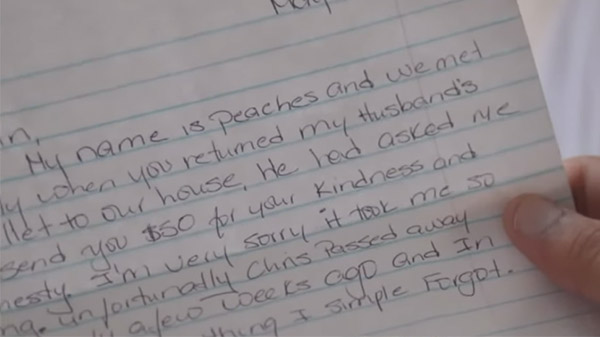 My name is Peaches and we met
when you returned my Husband's
to our house. He had asked me
send you $50 for your kindness and
I'm very sorry it took me so
Unfortunally Chris Passed away
a few weeks ago and In
I simple Forgot.